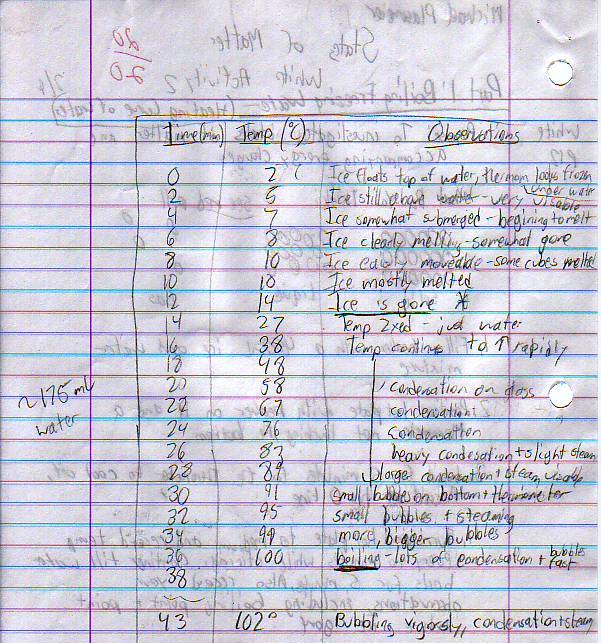 20
20
Time(min) Temp (°C) Observations
0 2 Ice floats top of water, thermom looks frozen
2 5 Ice still above water - very visable under water
4 7 Ice somewhat submerged - begining to melt
6 8 Ice clearly melting - somewhat gone
8 10 Ice easily moveable - some cubes melted
10 10 Ice mostly melted
12 14 Ice is gone *
14 27 Temp 2xed - just water
16 38 Temp continue to ↑ rapidly
18 48
20 58 condensation on glass
~175 mL
water
22 67 condensation
24 76 Condensation
26 83 heavy condesation + slight steam
28 89 larger condensation + steam visable
30 91 small bubbles on bottom + thermometer
32 95 small bubbles + steaming
34 99 more, bigger bubbles
36 100 boiling - lots of condensation + bubbles fast
38
43 102° Bubbling vigorsly, condensation + steam